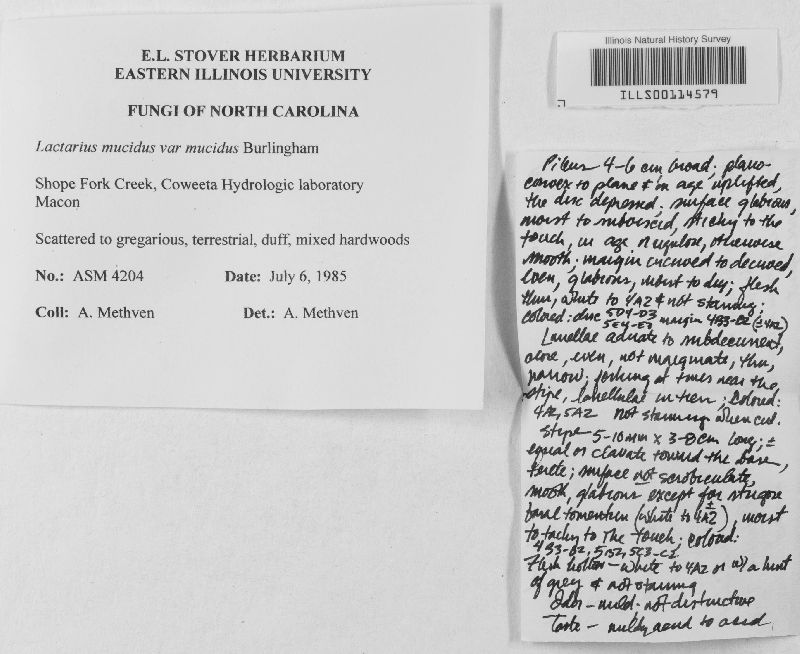 E.L. STOVER HERBARIUM
EASTERN ILLINOIS UNIVERSITY
FUNGI OF NORTH CAROLINA
Lactarius mucidus var mucidus Burlingham
Shope Fork Creek, Coweeta Hydrologic laboratory
Macon
Scattered to gregarious, terrestrial, duff, mixed hardwoods
No.: ASM 4204 Date: July 6, 1985
Coll: A. Methven Det.: A. Methven
Illinois Natural History Survey
ILLS00114579
Pileus 4-6 cm broad; plano-
convex to plane & in age uplifted,
the disc depressed; surface glabrous,
moist to subviscid, sticky to the
touch, in age rugulose, otherwise
smooth; margin incurved to decurved,
even, glabrous, moist to dry; flesh
thin, white to 4A2 & not staining;
colored: disc 5D4-D3 margin 4B3-B2 (±4A2)
5E4-E3
Lamellae adnate to subdecurrent,
close, even, not marginate, thin,
narrow; forking at times near the
stipe, lamellulae in tiers; colored:
4A2, 5A2 not staining when cut.
Stipe 5-10 mm x 3-8 cm long; ±
equal or clavate toward the base,
terete; surface not scrobiculate,
smooth, glabrous except for strigose
basal tomentum (white to ± 4A2), moist
to tacky to the touch; colored:
4B3-B2, 5B2, 5C3-C2
Flesh hollow - white to 4A2 or w/ a hint
of grey & not staining
Odor - mild - not distinctive
Taste - mildly acrid to acrid